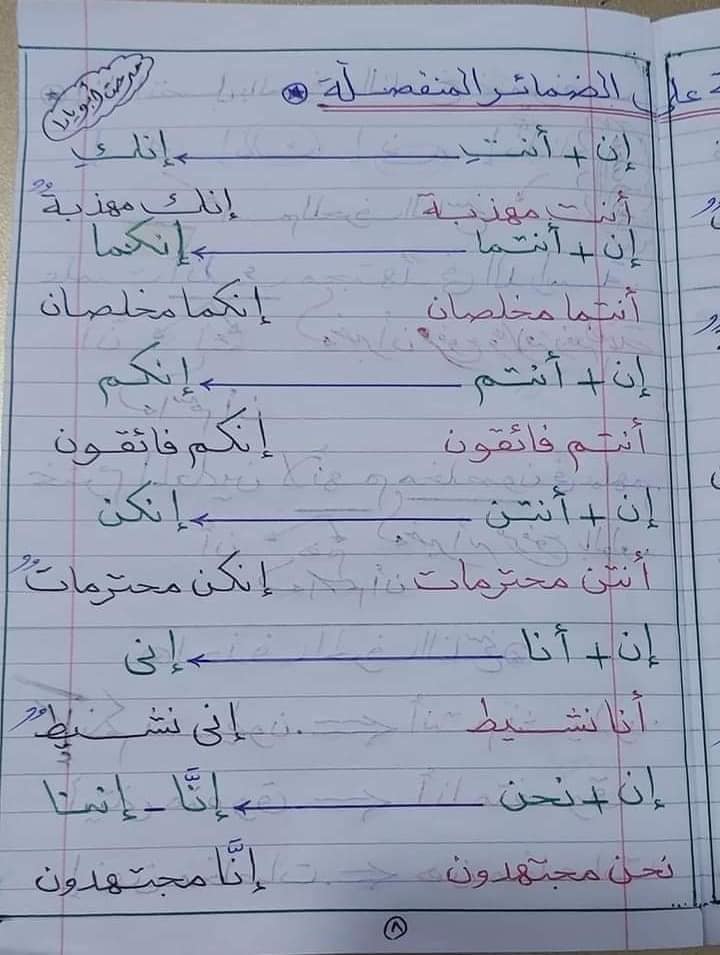 ة على الضمائر المنفصلة
إن + أنتِ ← إنكِ
أنت مهذبة إنك مهذبةٌ
إن + أنتما ← إنكما
أنتما مخلصان إنكما مخلصان
إن + أنتم ← إنكم
أنتم فائقون إنكم فائقون
إن + أنتن ← إنكن
أنتن محترمات إنكن محترماتٌ
إن + أنا ← إنى
أنا نشيط إنى نشيطٌ
إن + نحن ← إنَّا - إننا
نحن مجتهدون إنَّا مجتهدون
٨